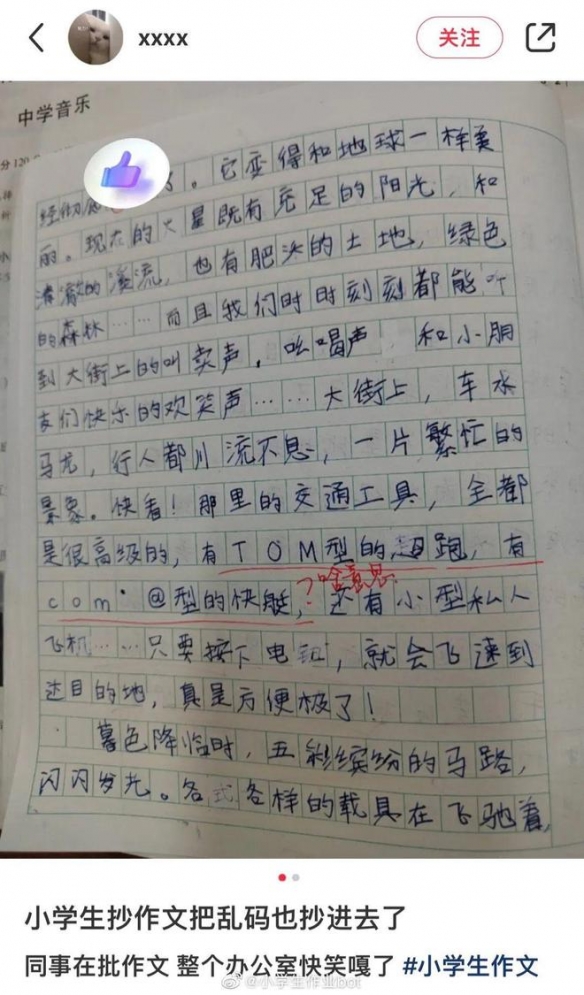 xxxx
关注
中学音乐
分120
了。它变得和地球一样美
丽。现在的火星既有充足的阳光,和
清澈的溪流,也有肥沃的土地,绿色
的森林……而且我们时时刻刻都能听
到大街上的叫卖声,吆喝声,和小朋
友们快乐的欢笑声……大街上,车水
马龙,行人都川流不息,一片繁忙的
景象。快看!那里的交通工具,全都
是很高级的,有TOM型的超跑,有
?啥意思
com·@型的快艇,还有小型私人
飞机……只要按下电钮,就会飞速到
达目的地,真是方便极了!
暮色降临时,五彩缤纷的马路,
闪闪发光。各式各样的载具在飞驰着,
小学生抄作文把乱码也抄进去了
同事在批作文 整个办公室快笑嘎了 #小学生作文
@小学生作业bot